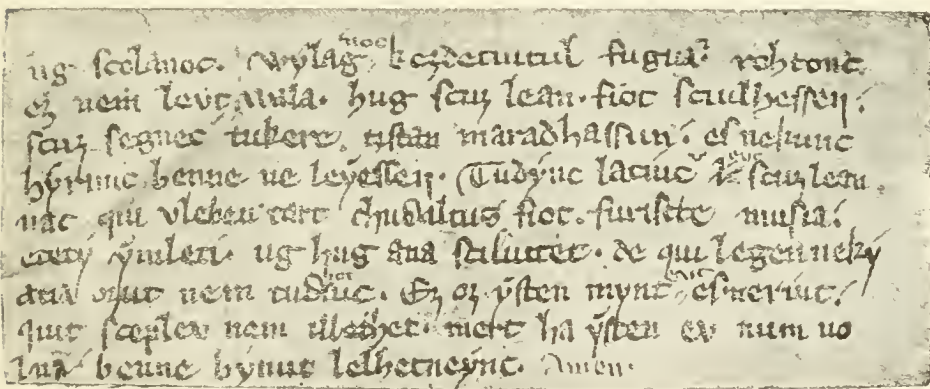 ug scolanoc. wylagnoc kezdetuitul fugua. rohtonc
ez nem levt wala. hug scuz lean. fiot sciulhessen.
scuz seguec tukere. tistan maradhassun. es nekunc
hyrunc benne ne leyessen. Tudyuc latiuc evt scuz lean
nac qui vleben tart chudaltus fiot. furiscte musia.
etety ymleti. ug hug ana sciluttet. de qui legen neky
atia ozut nem tudhotiuc. Ez oz ysten mynt evt esmeriuc.
quit sceplev nem illethet. mert ha ysten ev num uo
lna benne bynut lelhetneync. Amen.